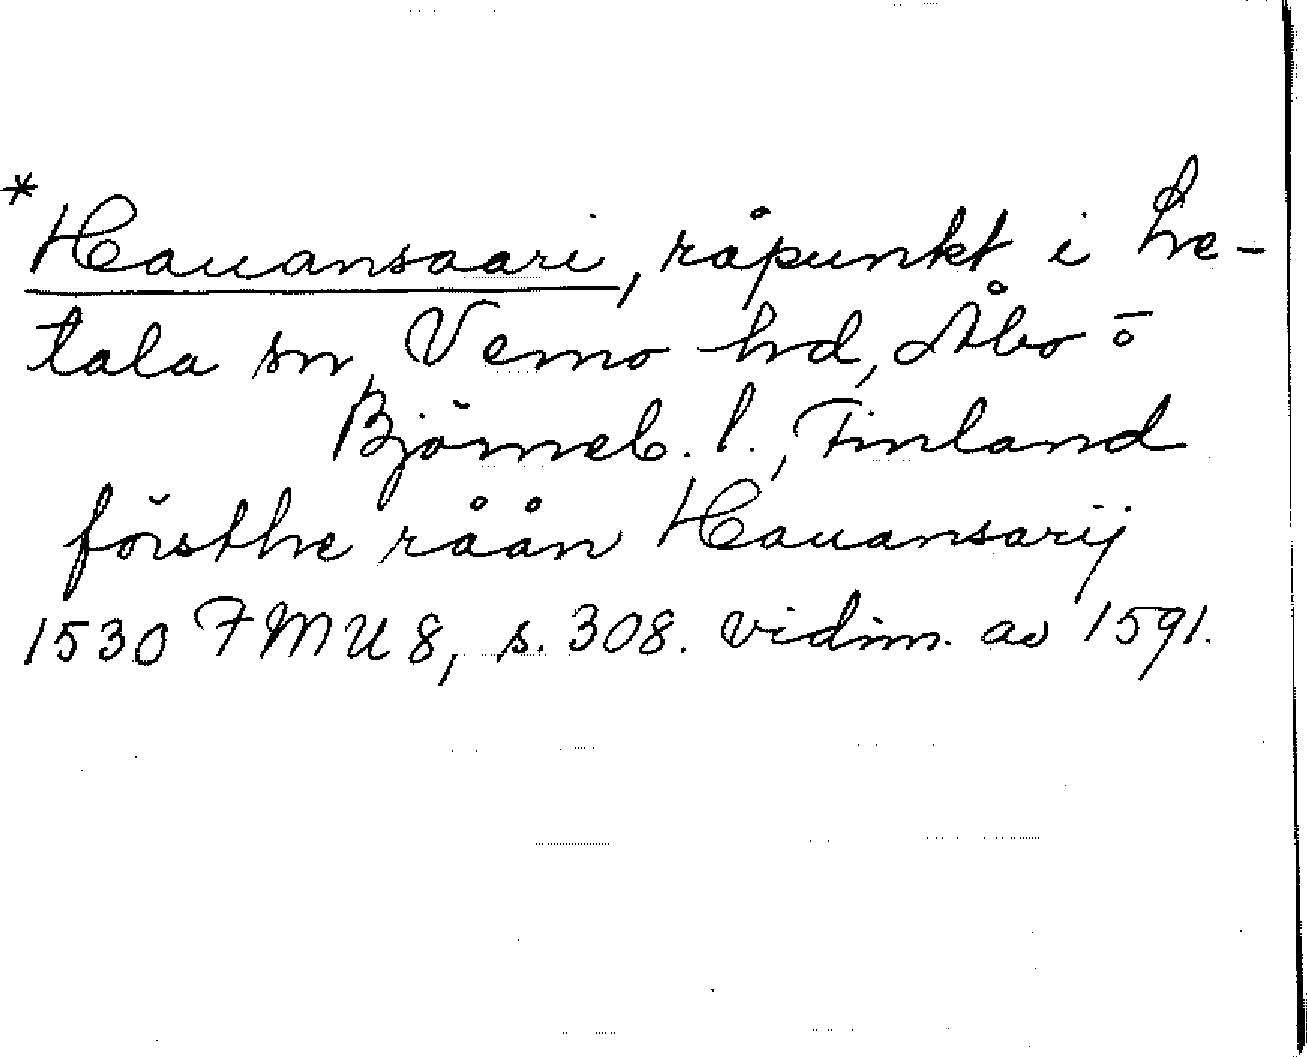 *Hauansaari, råpunkt i Le-
tala sn, Vemo hd, Åbo ō
Björneb. l., Finland
försthe råån Hauansarij
1530 FMU 8, s. 308. vidim. av 1591.